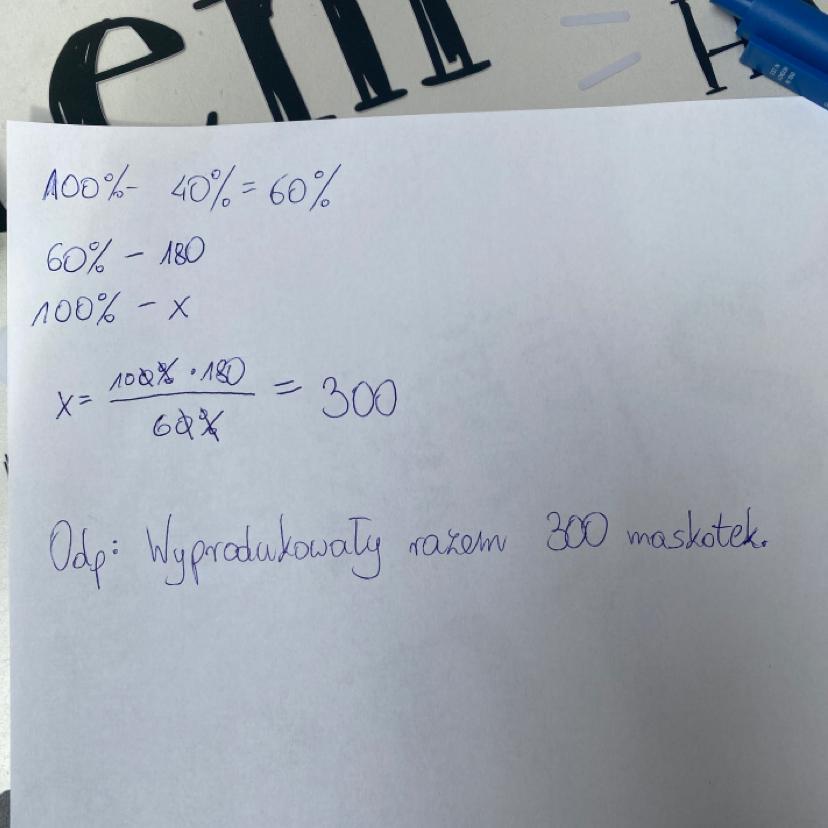 em = H
100% - 40% = 60%
60% - 180
100% - x
x = 100% · 180 / 60% = 300
Odp: Wyprodukowały razem 300 maskotek.